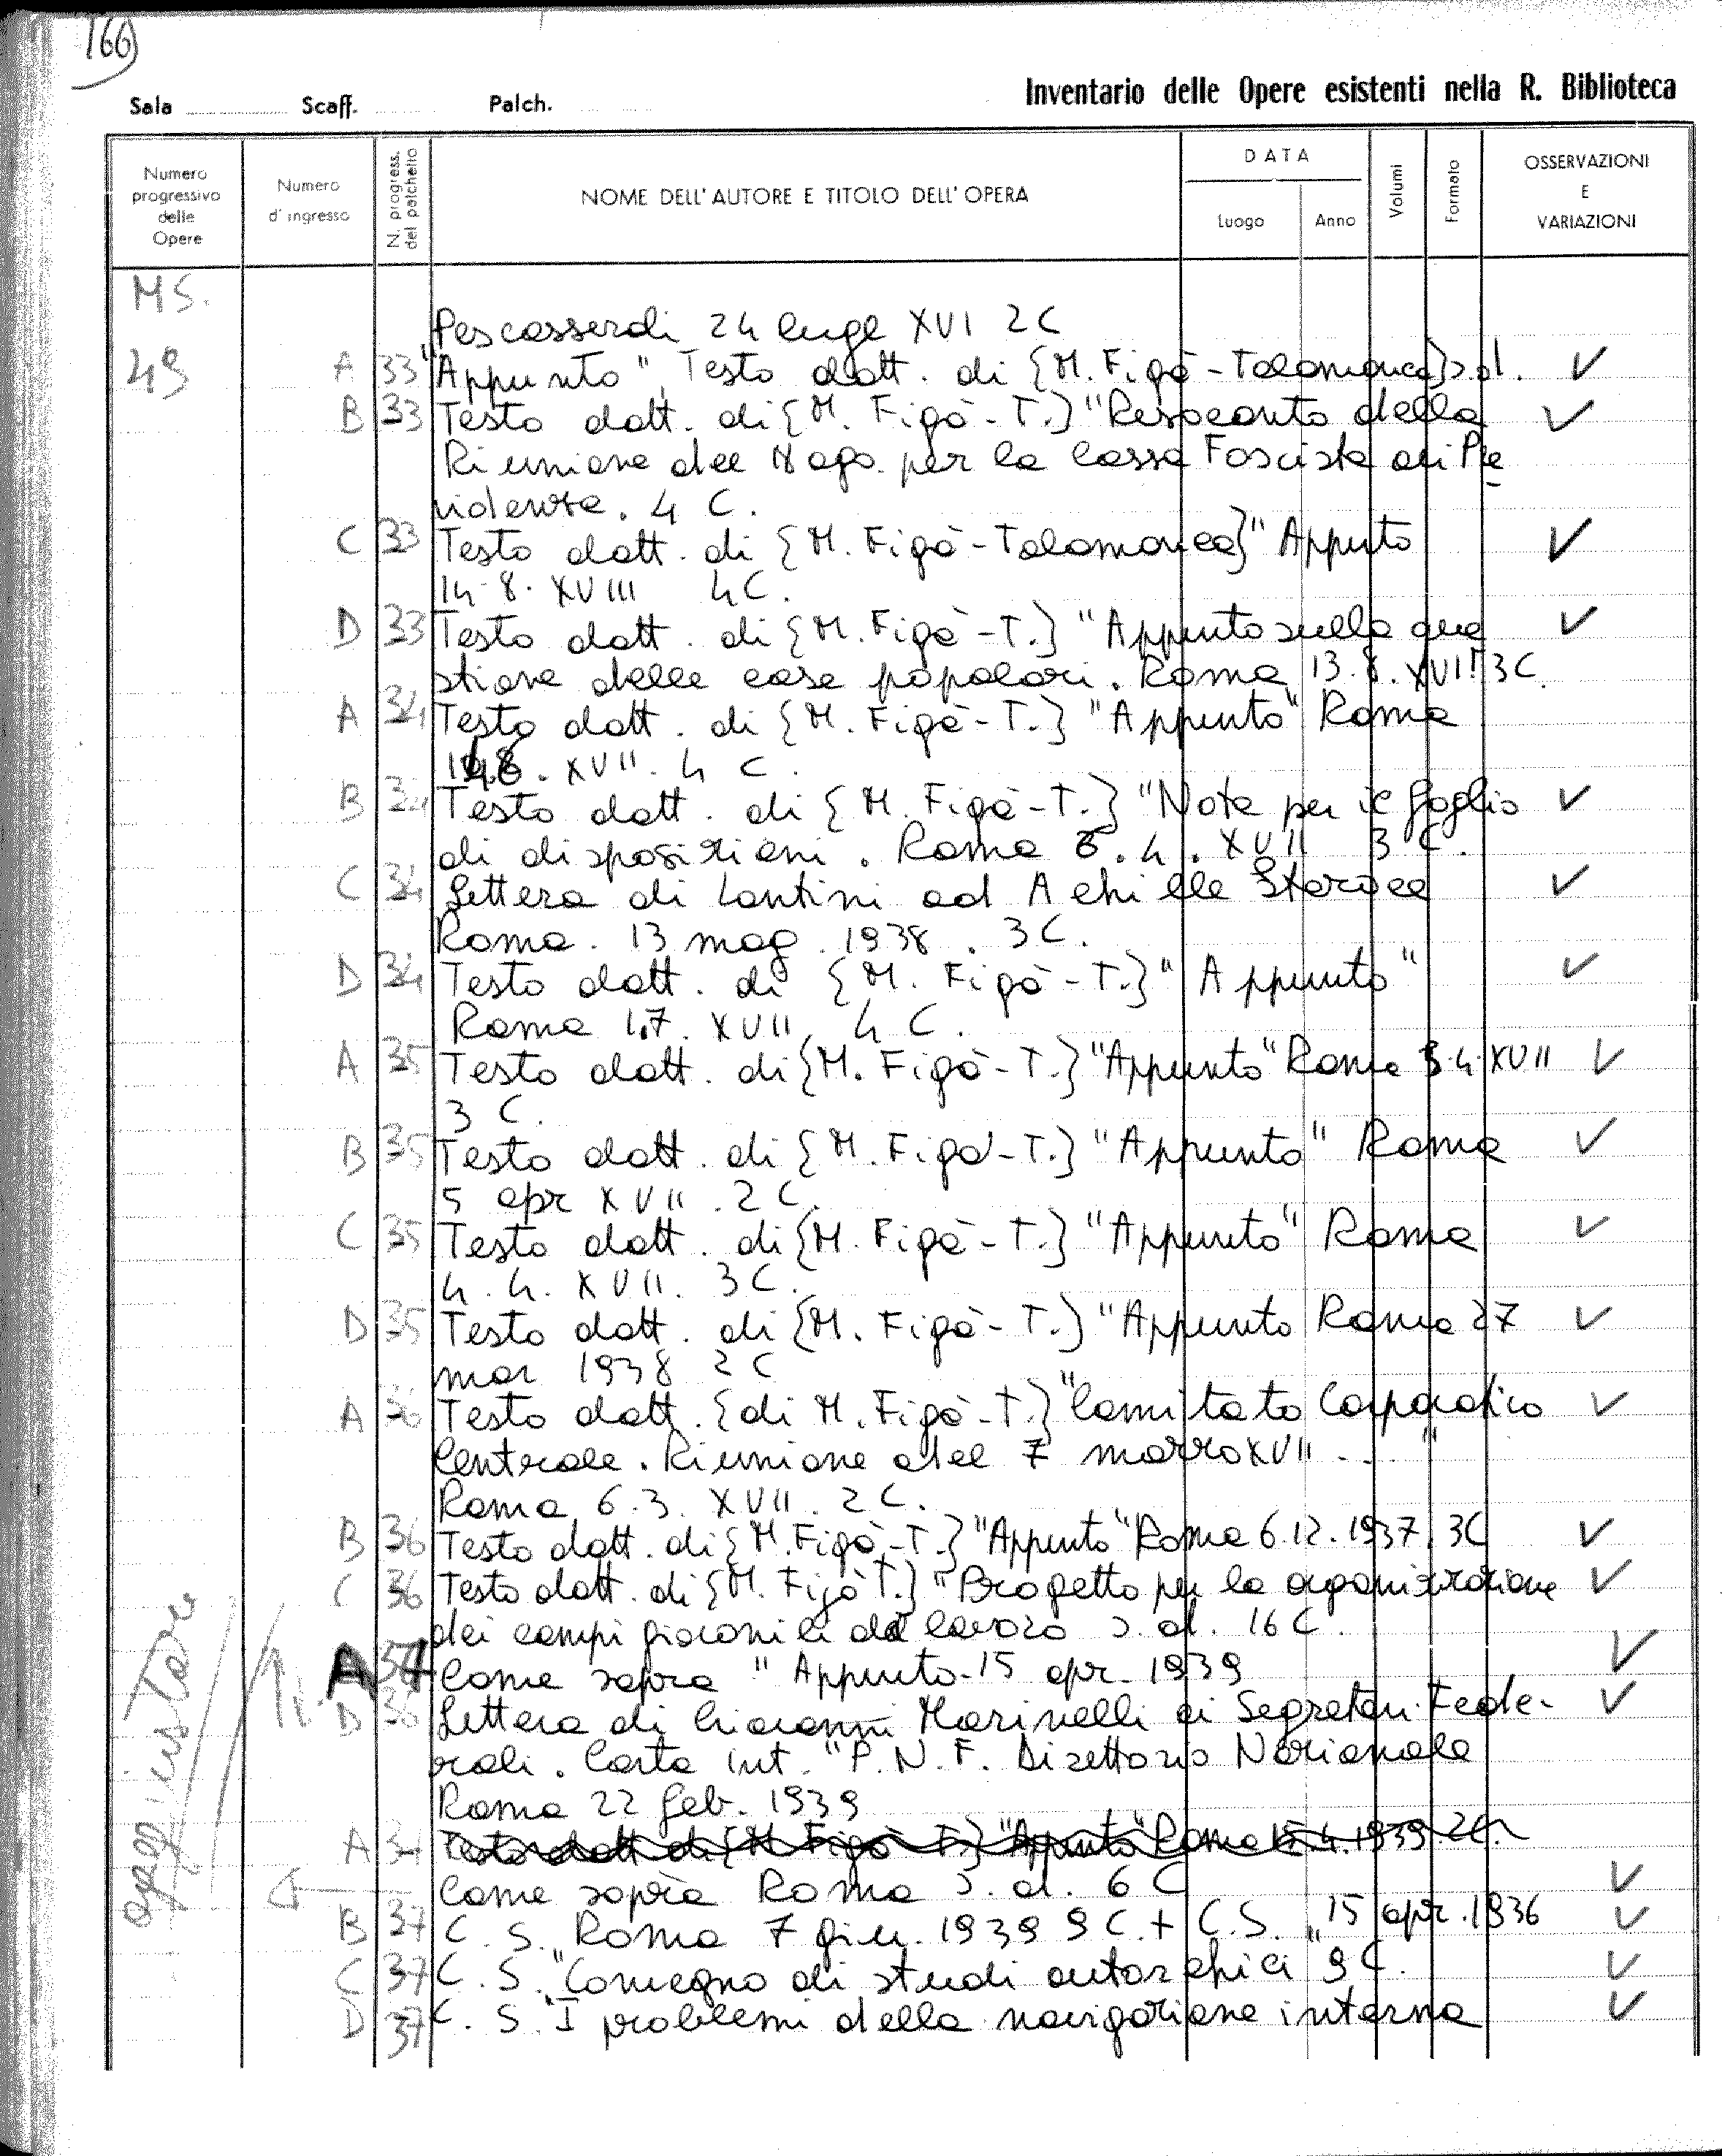 166)
Inventario delle Opere esistenti nella R. Biblioteca
Sala Scaff. Palch.
Numero progressivo delle Opere
Numero d'ingresso
N. progress. del palchetto
NOME DELL'AUTORE E TITOLO DELL'OPERA
DATA
Luogo Anno
Volumi
Formato
OSSERVAZIONI E VARIAZIONI
MS.
Pescasseroli 24 lugl XVI 2 C
49 A 33 "Appunto", Testo datt. di {M. Figà-Talamanca} s.d. V
B 33 Testo datt. di {M. Figà-T.} "Resoconto della V
Riunione del 18 ago. per la Cassa Fascista di Pre
videnza. 4 C.
C 33 Testo datt. di {M. Figà-Talamanca} "Appunto V
14.8.XVIII 4C.
D 33 Testo datt. di {M. Figà-T.} "Appunto sulla que V
stione delle case popolari. Roma 13.8.XVII 3C.
A 34 Testo datt. di {M. Figà-T.} "Appunto" Roma
XVII. 4 C.
B 34 Testo datt. di {M. Figà-T.} "Note per il foglio V
di disposizioni. Roma 6.4.XVII 3 C.
C 34 Lettera di Lantini ad Achille Starace V
Roma. 13 mag. 1938. 3C.
D 34 Testo datt. di {M. Figà-T.} "Appunto" V
Roma 1.7.XVII. 4 C.
A 35 Testo datt. di {M. Figà-T.} "Appunto" Roma 3.4.XVII V
3 C.
B 35 Testo datt. di {M. Figà-T.} "Appunto" Roma V
5 apr XVII. 2 C.
C 35 Testo datt. di {M. Figà-T.} "Appunto" Roma V
4.4.XVII. 3C.
D 35 Testo datt. di {M. Figà-T.} "Appunto Roma 27 V
mar 1938 2 C
A 36 Testo datt. {di M. Figà-T.} "Comitato Corporativo V
Centrale. Riunione del 7 marzo XVII ..."
Roma 6.3.XVII. 2 C.
B 36 Testo datt. di {M. Figà-T.} "Appunto" Roma 6.12.1937. 3C V
C 36 Testo datt. di {M. Figà T.} "Progetto per la organizzazione V
dei campi giovanili del lavoro s.d. 16 C.
A 37 Come sopra "Appunto-15 apr. 1939 V
D 36 Lettera di Giovanni Marinelli ai Segretari Fede- V
rali. Carta int. "P.N.F. Direttorio Nazionale
Roma 22 feb. 1939
A 37 Testo datt di {M Figà T.} "Appunto" Roma 15.4.1939. 2C.
Come sopra Roma s.d. 6 C V
B 37 C. S. Roma 7 giu. 1939 9 C. + C.S. 15 apr. 1936 V
C 37 C. S. "Convegno di studi autarchici" 9 C. V
D 37 C. S. "I problemi della navigazione interna V
aggiustare